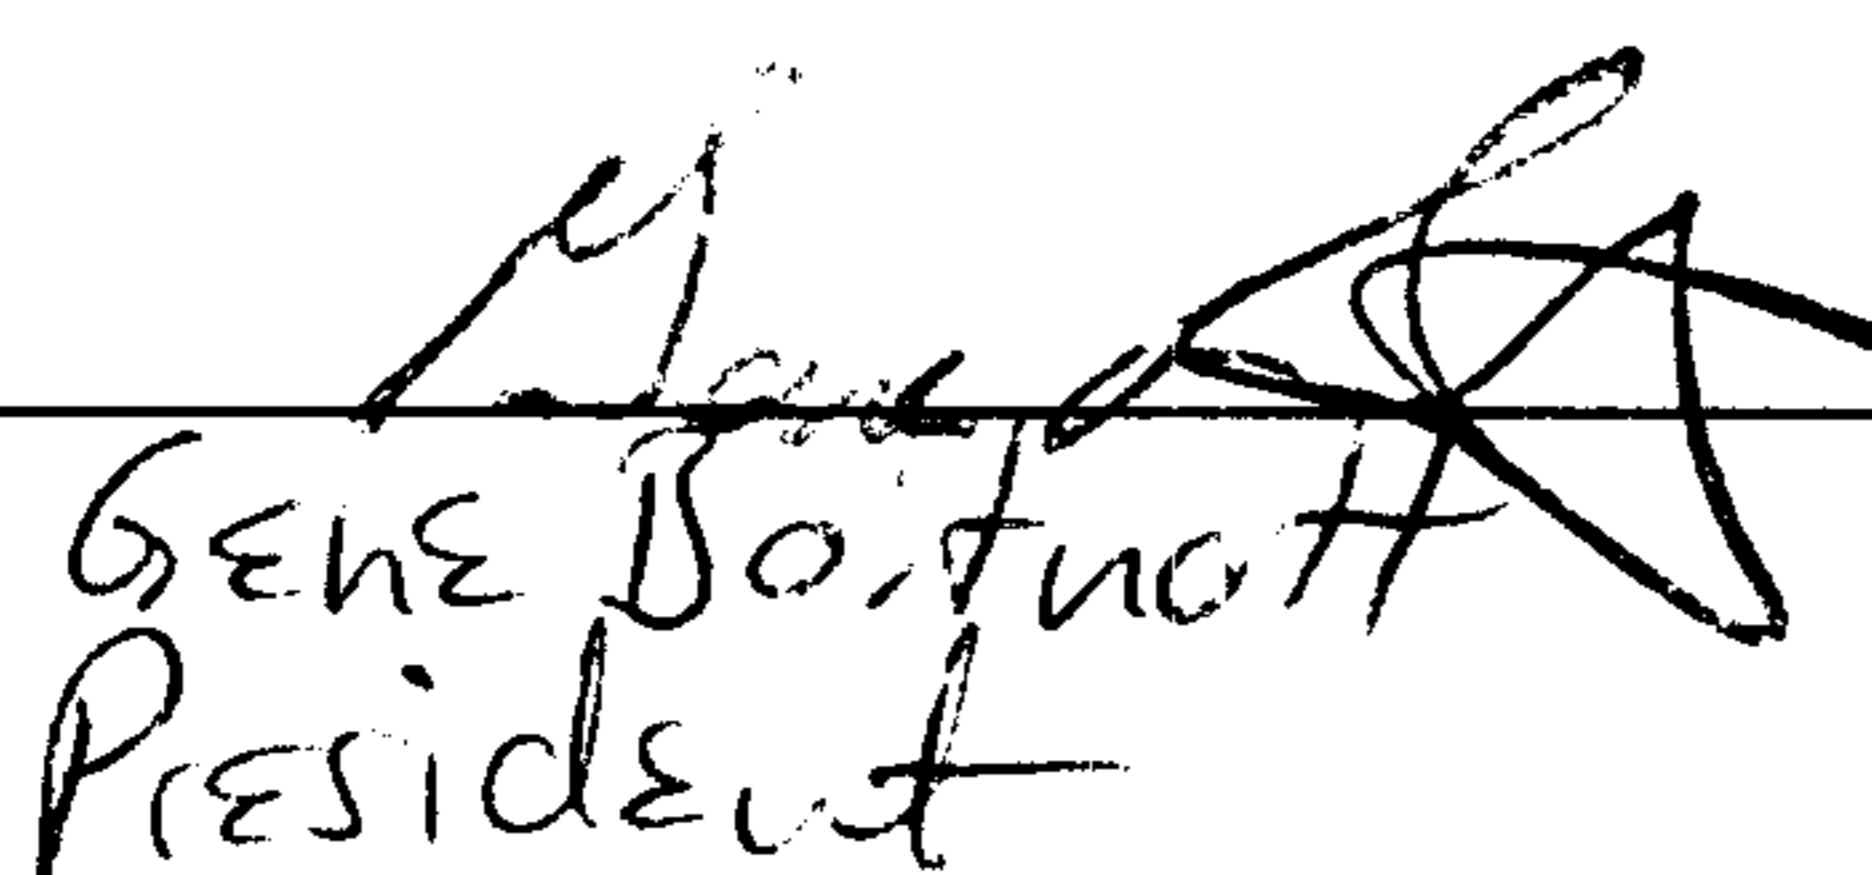 Gene Boitnott
President